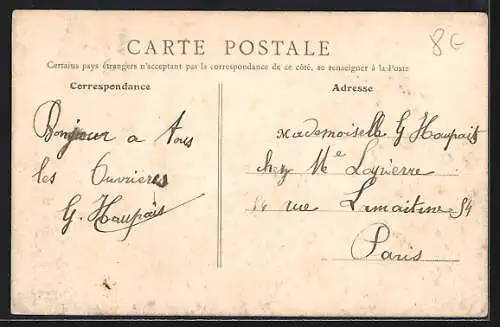 8G
CARTE POSTALE
Certains pays étrangers n'acceptant pas la correspondance de ce côté, se renseigner à la Poste
Correspondance
Adresse
Bonjour a tous
les Ouvrieres
G. Haupais
Mademoiselle G Haupais
chez Me
54 rue Lamartine 54
Paris